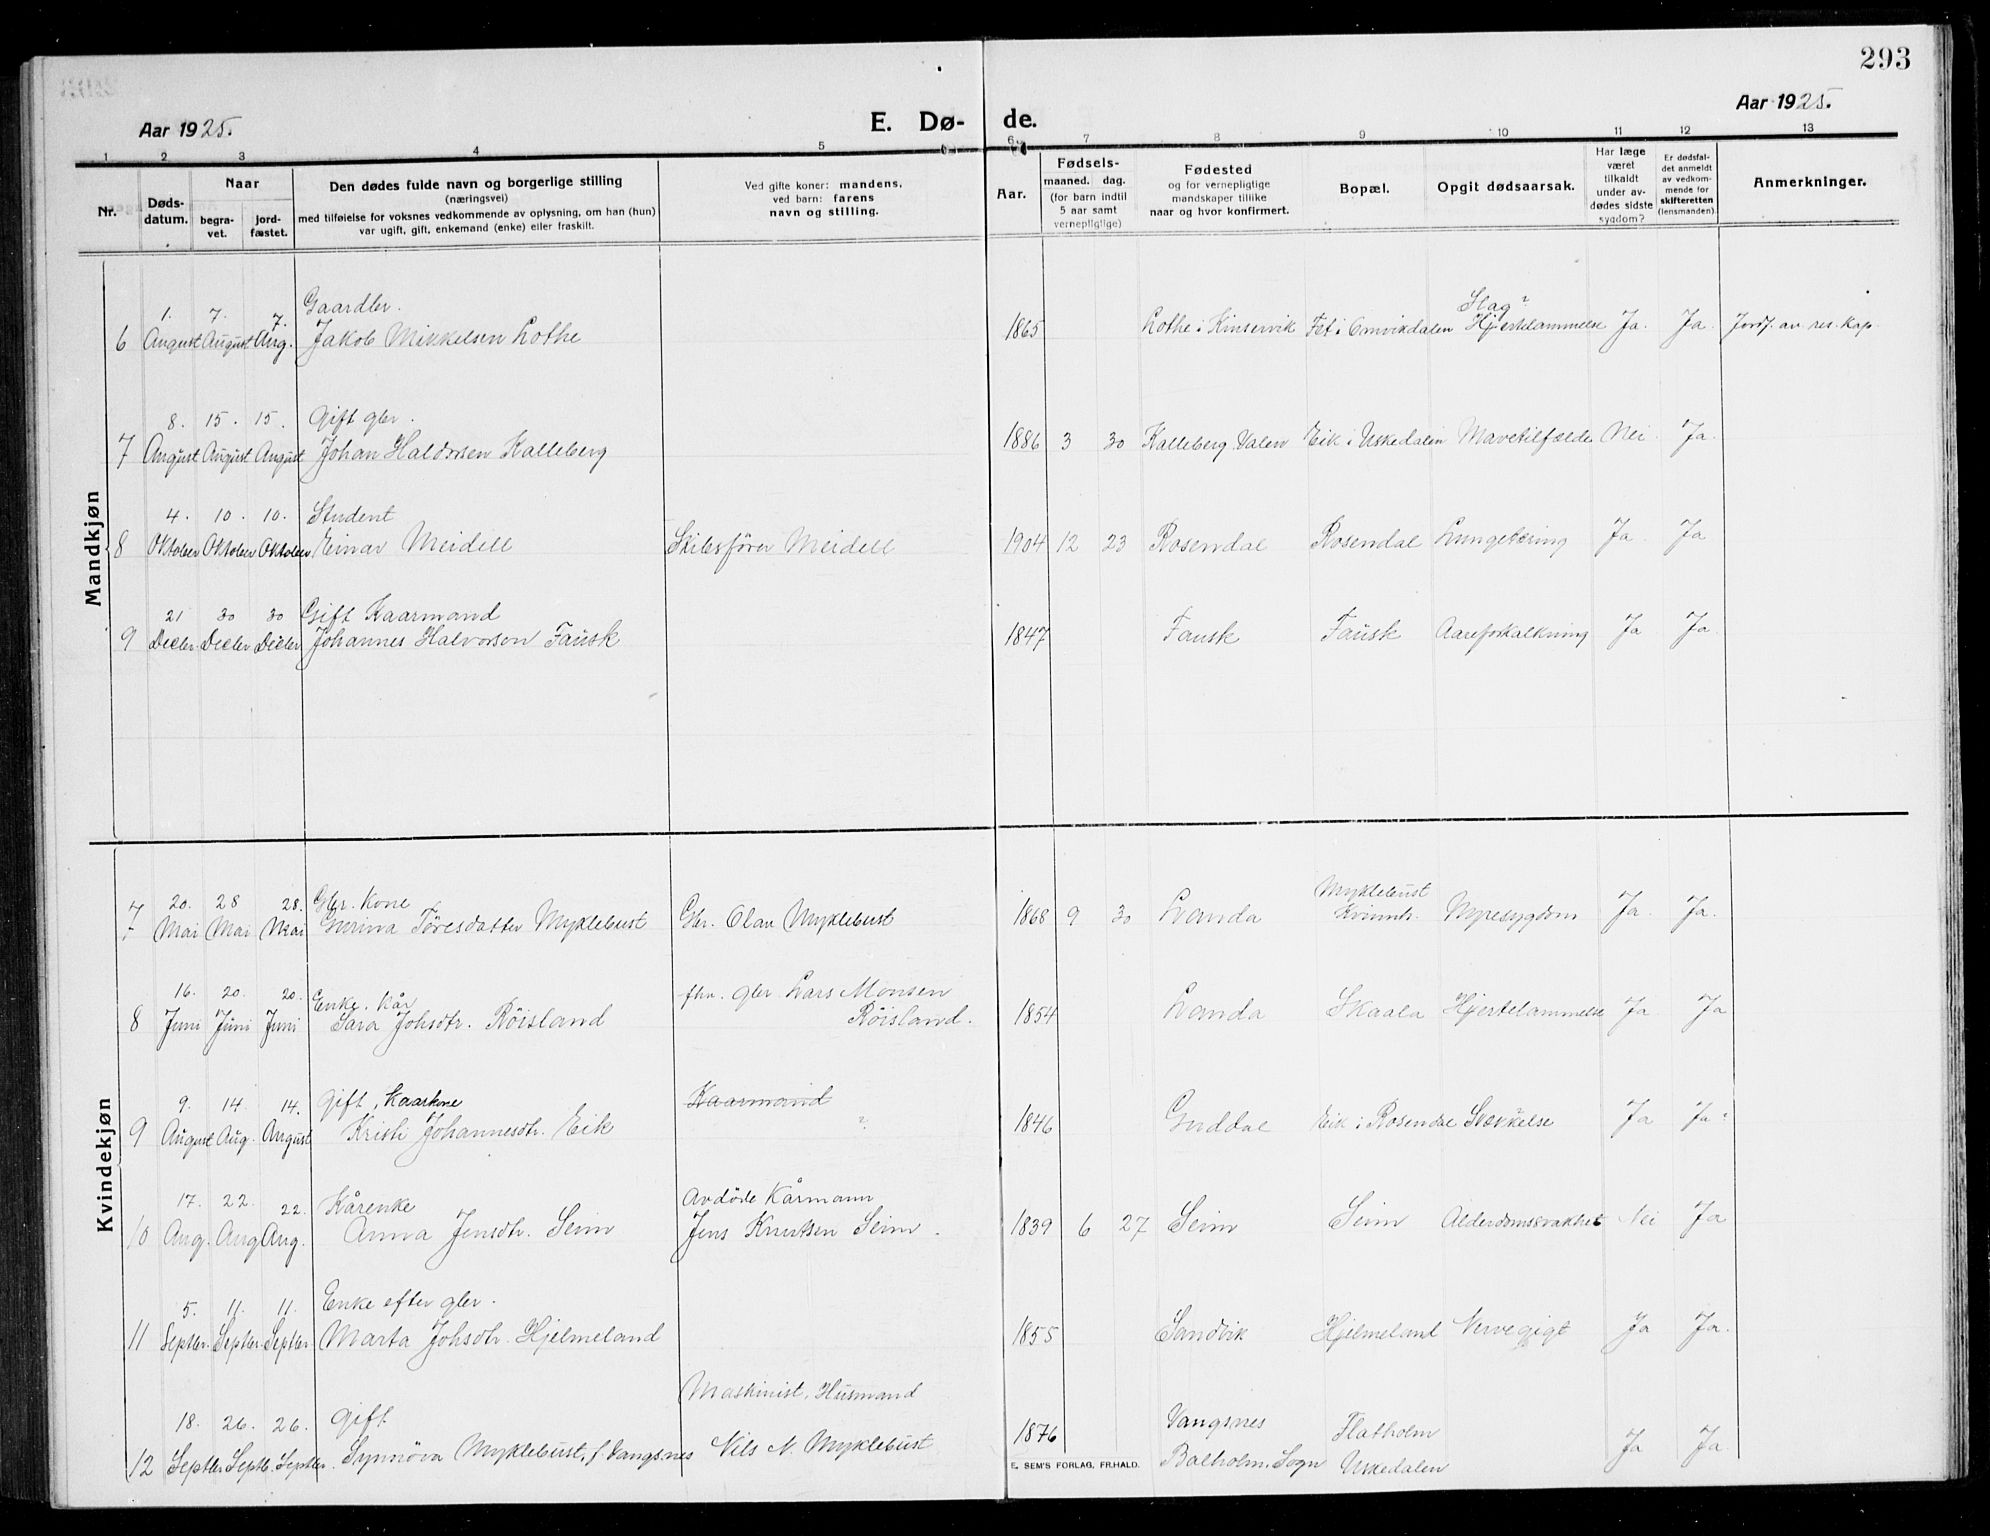 293
Aar 1925.
E. Dø-
de.
Aar 1925.
1 2 3 4 5 6 7 8 9 10 11 12 13
Nr.
Døds-
datum.
Naar
begra-
vet.
jord-
fæstet.
Den dødes fulde navn og borgerlige stilling
(næringsvei)
med tilføielse for voksnes vedkommende av oplysning, om han (hun)
var ugift, gift, enkemand (enke) eller fraskilt.
Ved gifte koner: mandens,
ved barn: farens
navn og stilling.
Aar.
Fødsels-
maaned. dag.
(for barn indtil
5 aar samt
vernepligtige)
Fødested
og for vernepligtige
mandskaper tillike
naar og hvor konfirmert.
Bopæl.
Opgit dødsaarsak.
Har læge
været
tilkaldt
under av-
dødes sidste
sygdom?
Er dødsfal-
det anmeldt
av vedkom-
mende for
skifteretten
(lensmanden).
Anmerkninger.
Mandkjøn
1. 7. 7. Gaardbr. Slag?
6 August August Aug. Jakob Mikkelsen Lothe 1865 Lothe i Kinservik Fet i Omvikdalen Hjertelammelse Ja. Ja. Jordf. av res. kap.
8. 15. 15. Gift gbr.
7 August August August Johan Haldorsen Kalleberg 1886 3 30 Kalleberg Valen Eik i Uskedalen Mavetilfælde Nei. Ja.
4. 10. 10. Student
8 Oktober Oktober Oktober Einar Meidell Skibsfører Meidell 1904 12 23 Rosendal Rosendal Lungetæring Ja. Ja
21 30 30 Gift Kaarmand
9 Decbr. Decbr Decbr Johannes Halvorson Fausk 1847 Fausk Fausk Aareforkalkning Ja Ja
Kvindekjøn
20. 28 28. Gbr. Kone Myklebust
7 Mai Mai Mai Gurina Tøresdatter Myklebust Gbr. Olav Myklebust 1868 9 30 Lvanda Kvinnh. Nyresygdom Ja. Ja.
16. 20. 20. Enke. Kår fhv. gbr Lars Monsen
8 Juni Juni Juni Sara Johsdtr. Røisland Røisland. 1854 Lvanda Skaala Hjertelammelse Ja Ja
9. 14. 14. Gift, Kaarkone Kaarmand
9 August Aug. August Kristi Johannesdtr. Eik ? 1846 Guddal Eik i Rosendal Svækkelse Ja Ja?
17. 22. 22. Kårenke Avdøde Kårmann
10 Aug. Aug Aug. Anna Jensdtr. Seim Jens Knutsen Seim. 1839 6 27 Seim Seim Alderdomssvakhet Nei Ja
5. 11. 11. Enke efter gbr.
11 Septbr. Septbr. Septbr. Marta Johsdtr. Hjelmeland 1855 Sandvik Hjelmeland Nervegigt Ja Ja.
Maskinist, Husmand
18. 26. 26. Gift 1876 Vangsnes Flatholm
12 Septbr Septb. Septbr. Synnøva Myklebust, f. Vangsnes Nils N. Myklebust Balholm, Sogn Uskedalen Ja Ja
E. SEM'S FORLAG, FR.HALD.